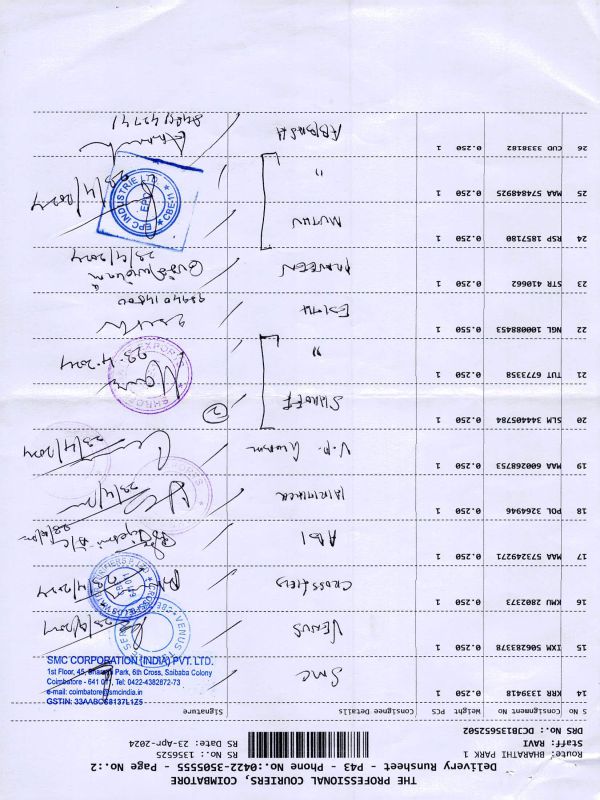 THE PROFESSIONAL COURIERS, COIMBATORE
Delivery Runsheet - P43 - Phone No.:0422-3505555 - Page No.:2
Route: BHARATHI PARK 1
Staff: RAVI
DRS No.: DCJB135652502
RS No.: 1356525
RS Date: 23-Apr-2024
S No Consignment No Weight PCS Consignee Details Signature
14 KRR 1339418 0.250 1 SMC
SMC CORPORATION (INDIA) PVT. LTD.
1st Floor, 45, Bharathi Park, 6th Cross, Saibaba Colony
Coimbatore - 641 011, Tel: 0422-4382872-73
e-mail: coimbatore@smcindia.in
GSTIN: 33AABCS8137L1Z5
15 IXM 506283378 0.250 1 VENUS 23/4/2024
16 KMU 2802373 0.250 1 CROSSFIELD
17 MAA 573249271 0.250 1 ADI
18 POL 3264946 0.250 1 23/4/
19 MAA 600268753 0.250 1 V.P. 23/4/2024
20 SLM 344405784 0.250 1 SHROFF 2
21 TUT 6773358 0.250 1 " 23.4.2024
22 NGL 100088453 0.550 1 EDITH
23 STR 410662 0.250 1 PRAVEEN 23/4/2024
24 RSP 1857180 0.250 1 MUTHU
25 MAA 574848925 0.250 1 " 23/4/2024
EPC INDUSTRIE LTD
EPC
CBE-11
26 CUD 3338182 0.250 1